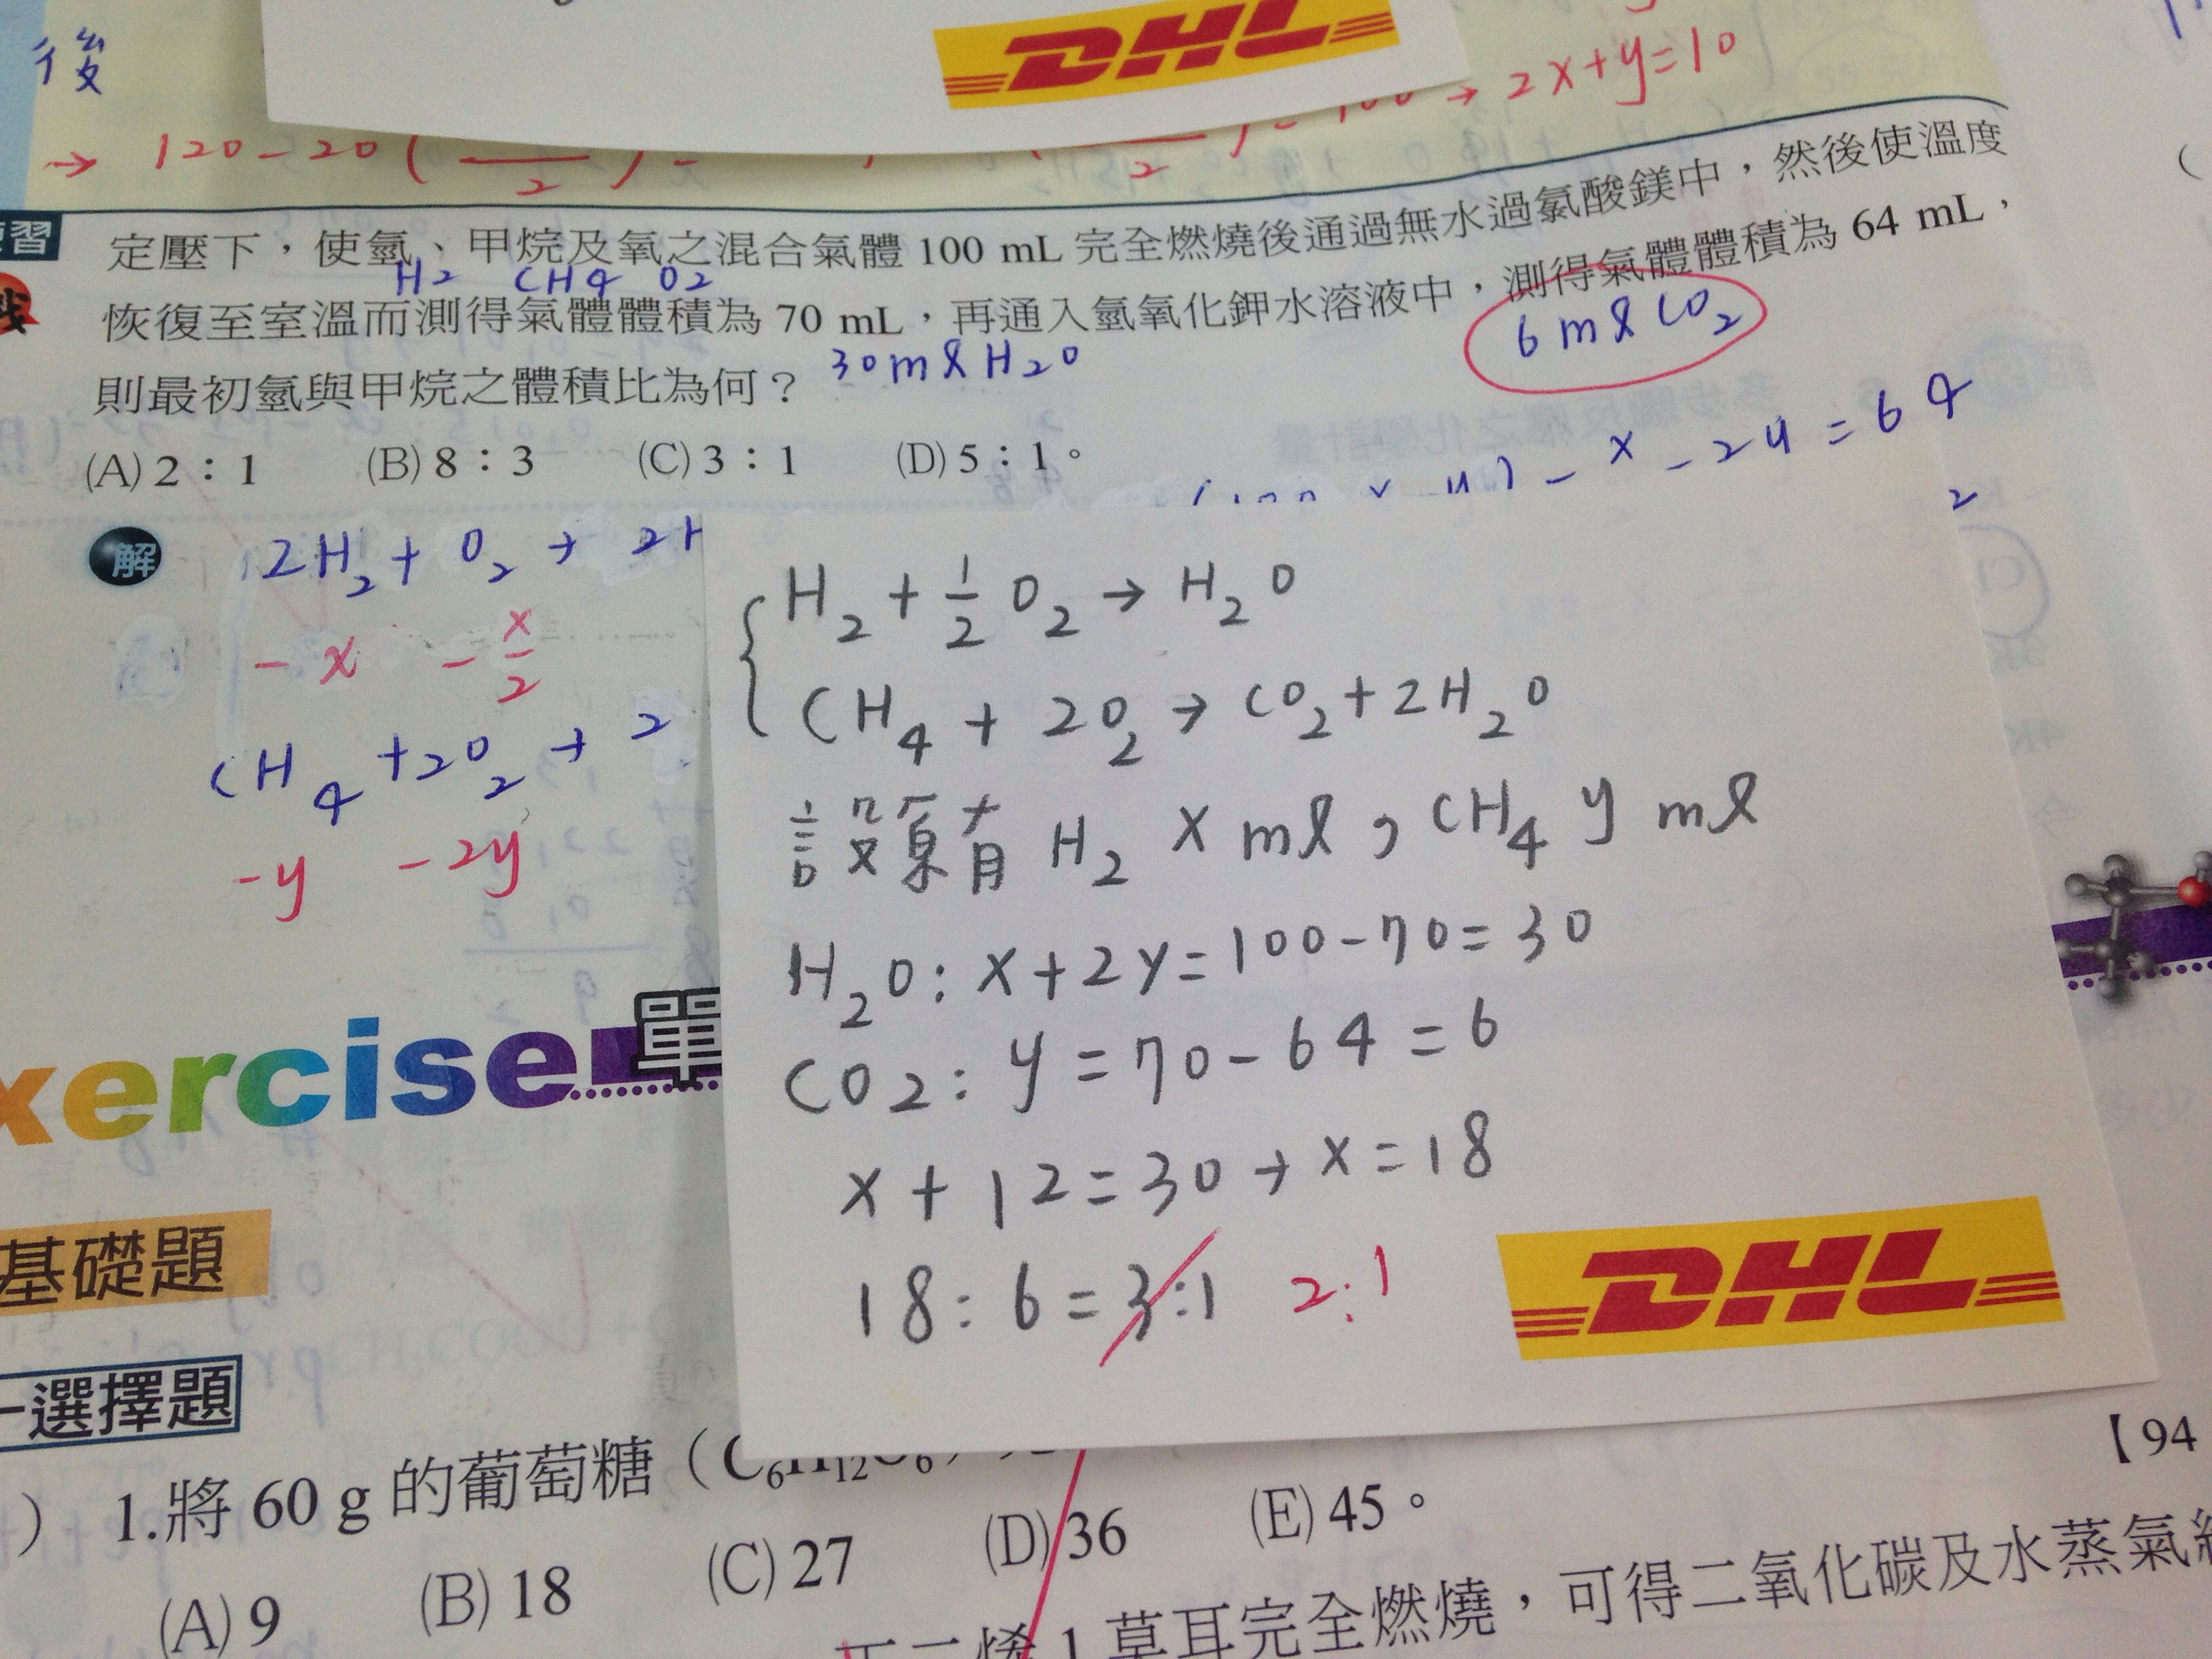 DHL
後
→ 2x+y=10
→ 120-20(
2
定壓下，使氫、甲烷及氧之混合氣體 100 mL 完全燃燒後通過無水過氯酸鎂中，然後使溫度
H2 CH4 O2
恢復至室溫而測得氣體體積為 70 mL，再通入氫氧化鉀水溶液中，測得氣體體積為 64 mL，
30ml H2O
6ml CO2
則最初氫與甲烷之體積比為何？
(A) 2：1 (B) 8：3 (C) 3：1 (D) 5：1。
- x - 2y = 64
解
2H2 + O2 →
-x -x/2
CH4 + 2O2 → 2
-y -2y
H2 + 1/2 O2 → H2O
CH4 + 2O2 → CO2 + 2H2O
設原有 H2 x ml，CH4 y ml
H2O: x+2y=100-70=30
CO2: y=70-64=6
x+12=30→x=18
18:6=3:1 2:1
DHL
xercise 單
基礎題
選擇題
【94
) 1.將 60 g 的葡萄糖（C6H12O6
(A) 9 (B) 18 (C) 27 (D) 36 (E) 45。
1 莫耳完全燃燒，可得二氧化碳及水蒸氣